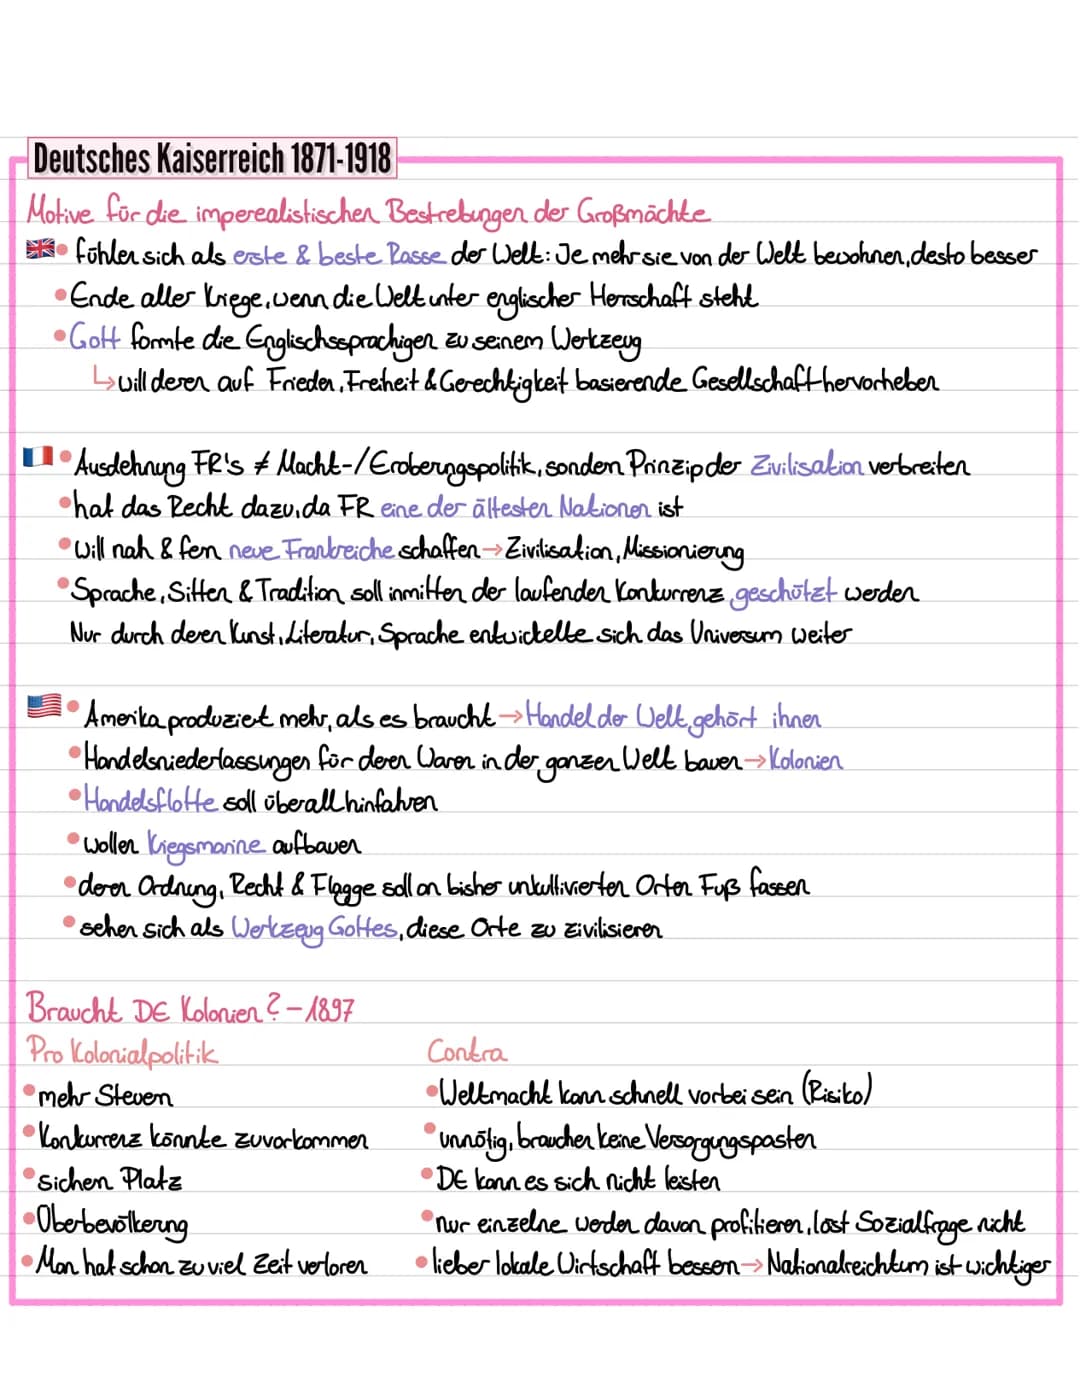 Deutsches Kaiserreich 1871-1918
Motive für die imperealistischen Bestrebungen der Großmächte
• fühlen sich als erste & beste Rasse der Welt: Je mehr sie von der Welt bewohnen, desto besser
• Ende aller Kriege, wenn die Welt unter englischer Herrschaft steht
• Gott formte die Englischssprachigen zu seinem Werkzeug
↳ will deren auf Frieden, Freiheit & Gerechtigkeit basierende Gesellschaft hervorheben
• Ausdehnung FR's ≠ Macht-/Eroberungspolitik, sondern Prinzip der Zivilisation verbreiten
• hat das Recht dazu, da FR eine der ältesten Nationen ist
• will nah & fern neue Frankreiche schaffen → Zivilisation, Missionierung
• Sprache, Sitten & Tradition soll inmitten der laufenden Konkurrenz geschützt werden
Nur durch deren Kunst, Literatur, Sprache entwickelte sich das Universum weiter
• Amerika produziert mehr, als es braucht → Handel der Welt gehört ihnen
• Handelsniederlassungen für deren Waren in der ganzen Welt bauen → Kolonien
• Handelsflotte soll überall hinfahren
• wollen Kriegsmarine aufbauen
• deren Ordnung, Recht & Flagge soll an bisher unkultivierten Orten Fuß fassen
• sehen sich als Werkzeug Gottes, diese Orte zu zivilisieren
Braucht DE Kolonien? - 1897
Pro Kolonialpolitik
• mehr Steuern
• Konkurrenz könnte zuvorkommen
• sichern Platz
• Überbevölkerung
• Man hat schon zu viel Zeit verloren
Contra
• Weltmacht kann schnell vorbei sein (Risiko)
• unnötig, brauchen keine Versorgungsposten
• DE kann es sich nicht leisten
• nur einzelne werden davon profitieren, löst Sozialfrage nicht
• lieber lokale Wirtschaft bessern → Nationalreichtum ist wichtiger